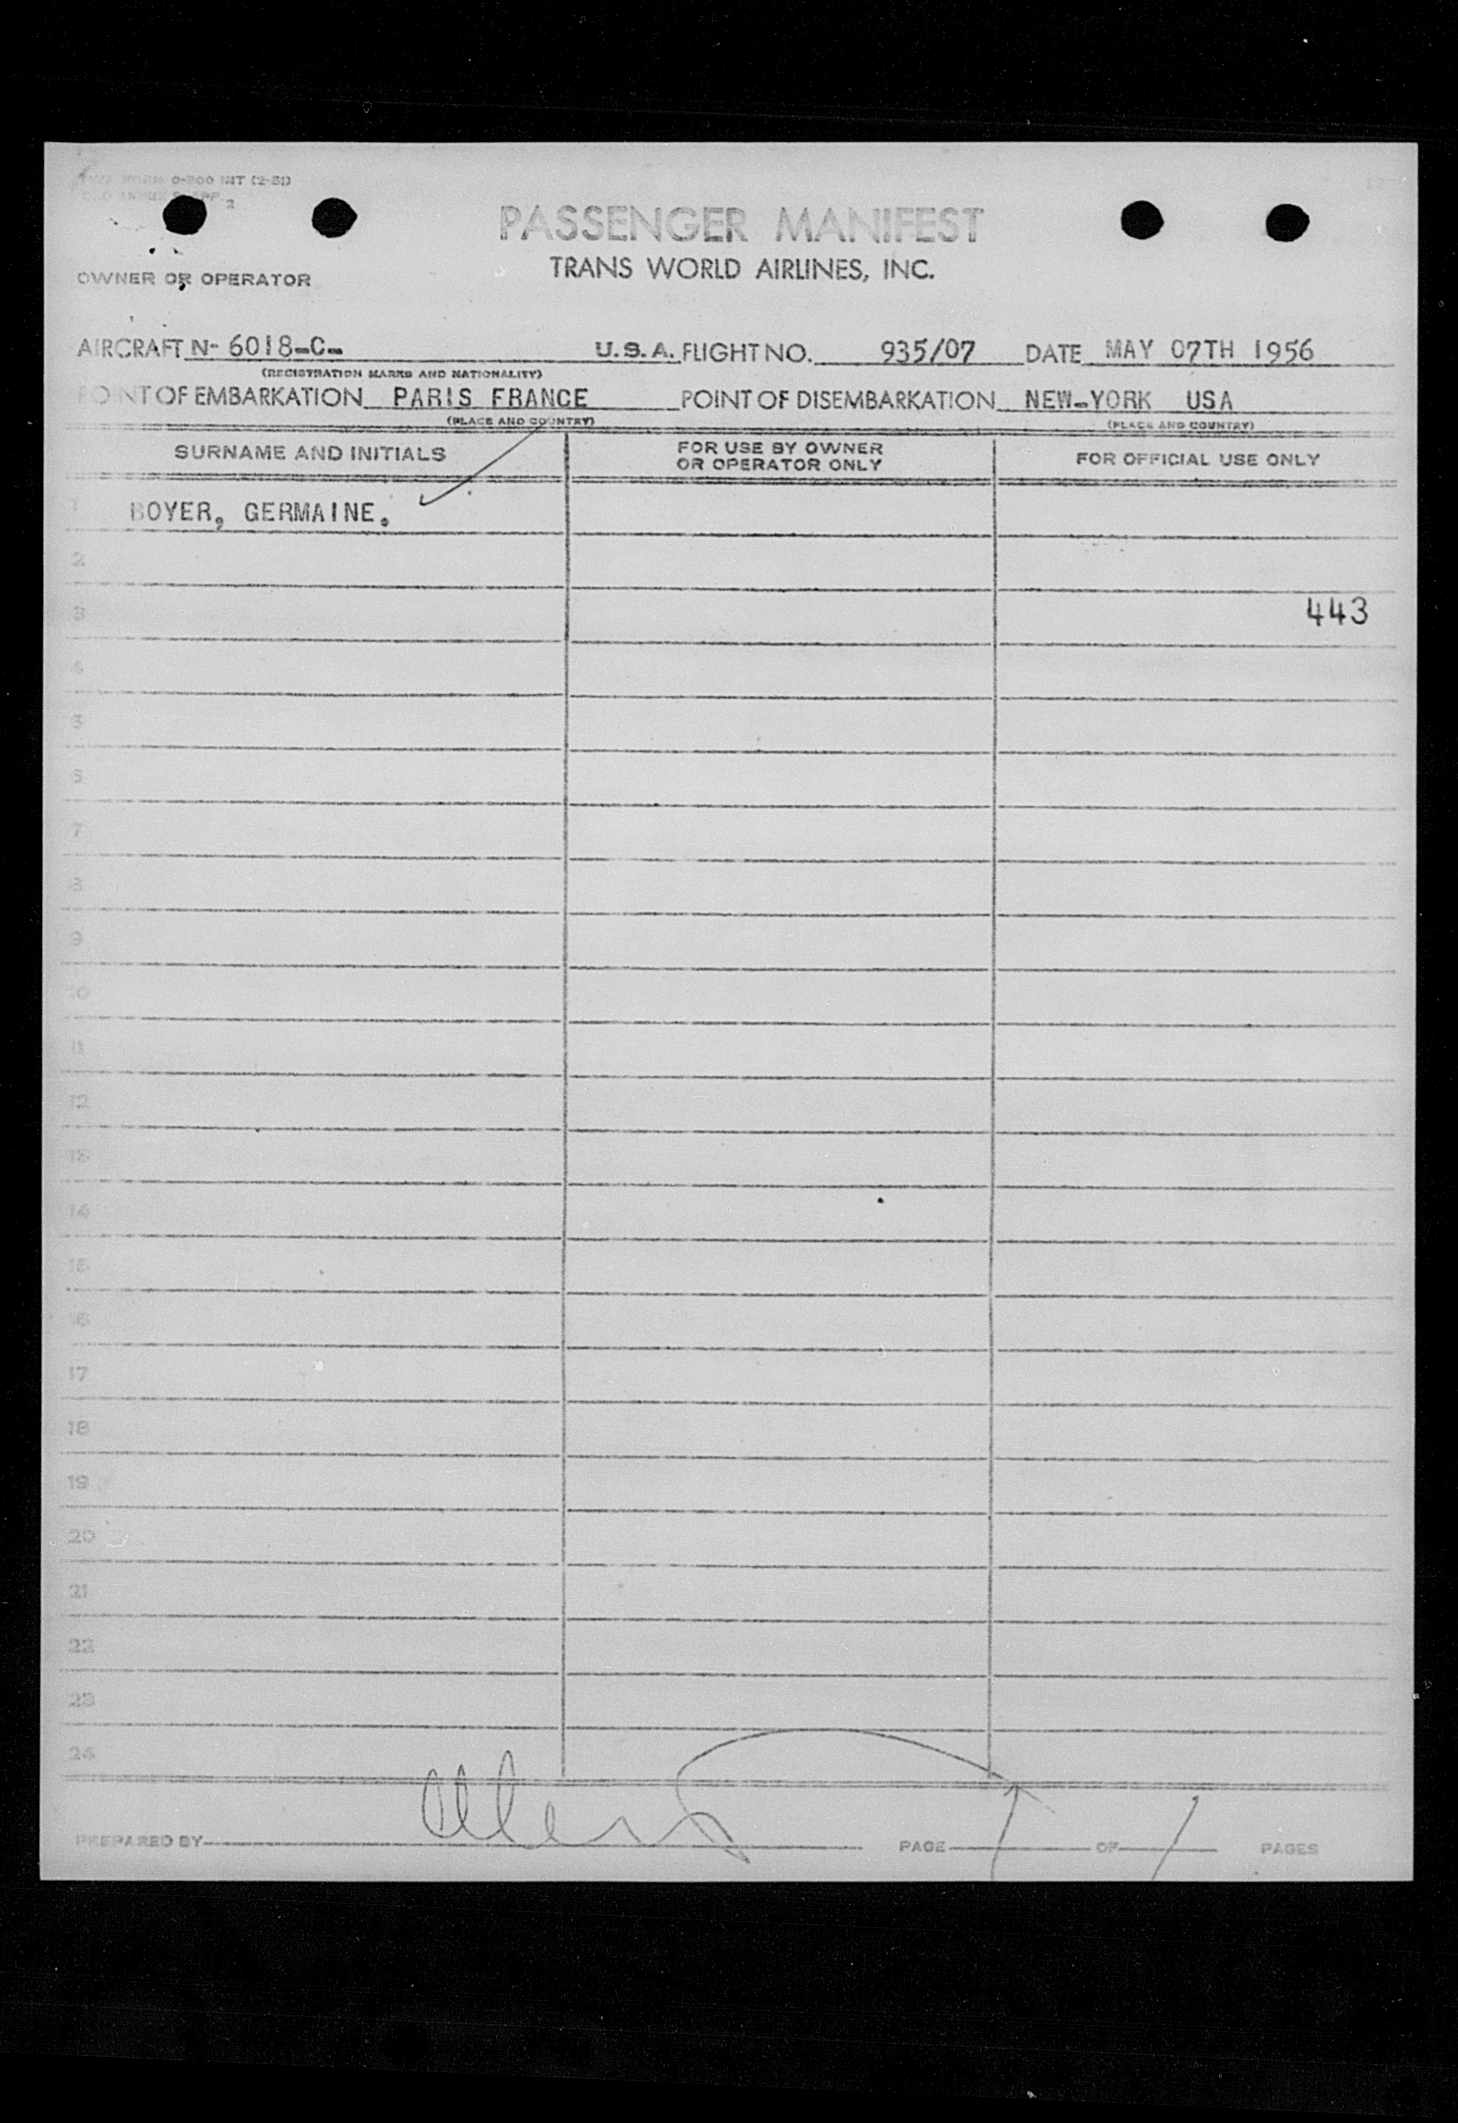 TWA FORM 0-200 INT (2-51)
PASSENGER MANIFEST
TRANS WORLD AIRLINES, INC.
OWNER OR OPERATOR
AIRCRAFT N- 6018-C- U.S.A. FLIGHT NO. 935/07 DATE MAY 07TH 1956
(REGISTRATION MARKS AND NATIONALITY)
POINT OF EMBARKATION PARIS FRANCE POINT OF DISEMBARKATION NEW-YORK USA
(PLACE AND COUNTRY) (PLACE AND COUNTRY)
SURNAME AND INITIALS FOR USE BY OWNER OR OPERATOR ONLY FOR OFFICIAL USE ONLY
1 BOYER, GERMAINE.
2
3 443
4
5
6
7
8
9
10
11
12
13
14
15
16
17
18
19
20
21
22
23
24
PREPARED BY PAGE 1 OF 1 PAGES